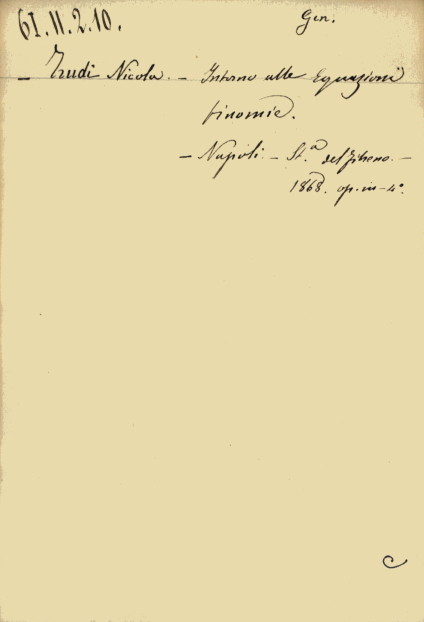 61.11.2.10.
Gen.
– Trudi Nicola. – Intorno alle Equazioni
binomie.
– Napoli – St.ª del Fibreno. –
1868. op. in-4°.
C